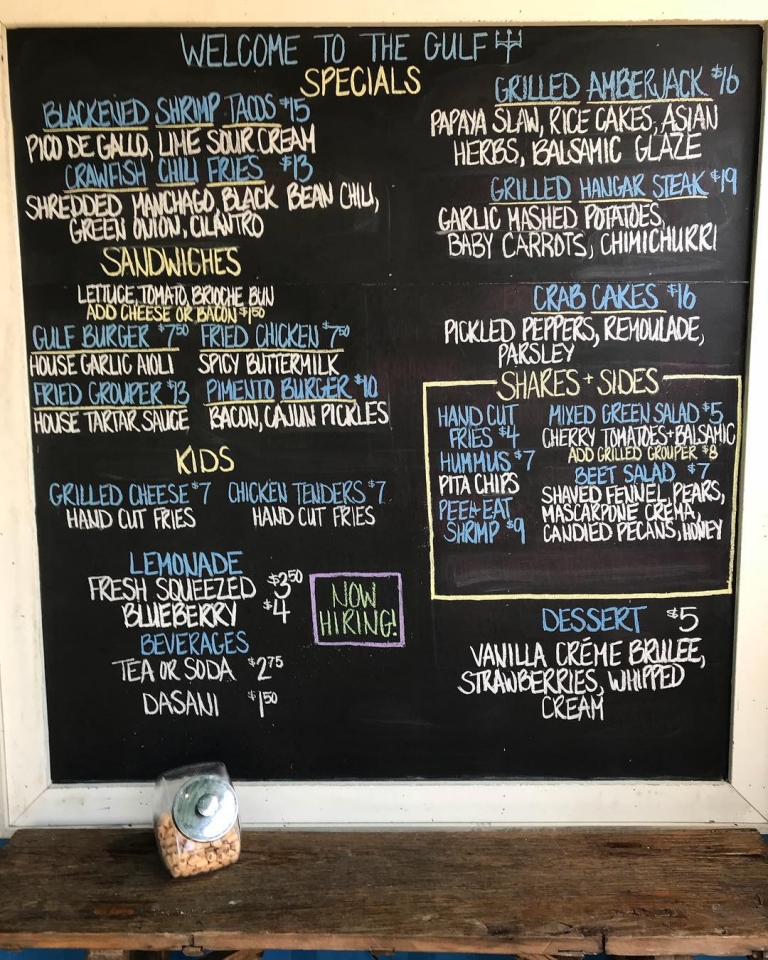 WELCOME TO THE GULF
SPECIALS
BLACKENED SHRIMP TACOS $15
PICO DE GALLO, LIME SOUR CREAM
CRAWFISH CHILI FRIES $13
SHREDDED MANCHAGO, BLACK BEAN CHILI,
GREEN ONION, CILANTRO
SANDWICHES
LETTUCE, TOMATO, BRIOCHE BUN
ADD CHEESE OR BACON $1.50
GULF BURGER $7.50 FRIED CHICKEN $7.50
HOUSE GARLIC AIOLI SPICY BUTTERMILK
FRIED GROUPER $13 PIMENTO BURGER $10
HOUSE TARTAR SAUCE BACON, CAJUN PICKLES
KIDS
GRILLED CHEESE $7 CHICKEN TENDERS $7
HAND CUT FRIES HAND CUT FRIES
LEMONADE
FRESH SQUEEZED $3.50
BLUEBERRY $4
BEVERAGES
TEA OR SODA $2.75
DASANI $1.50
NOW
HIRING!
GRILLED AMBERJACK $16
PAPAYA SLAW, RICE CAKES, ASIAN
HERBS, BALSAMIC GLAZE
GRILLED HANGAR STEAK $19
GARLIC MASHED POTATOES,
BABY CARROTS, CHIMICHURRI
CRAB CAKES $16
PICKLED PEPPERS, REMOULADE,
PARSLEY
SHARES + SIDES
HAND CUT
FRIES $4
HUMMUS $7
PITA CHIPS
PEEL + EAT
SHRIMP $9
MIXED GREEN SALAD $5
CHERRY TOMATOES + BALSAMIC
ADD GRILLED GROUPER $8
BEET SALAD $7
SHAVED FENNEL, PEARS,
MASCARPONE CREMA,
CANDIED PECANS, HONEY
DESSERT $5
VANILLA CRÉME BRULEE,
STRAWBERRIES, WHIPPED
CREAM